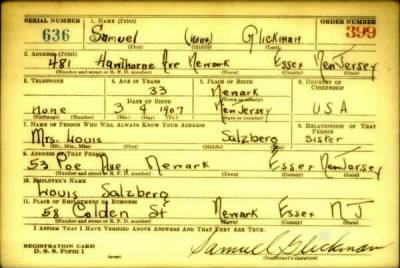 SERIAL NUMBER 1. NAME (Print) ORDER NUMBER
636 Samuel (none) Glickman 399
(First) (Middle) (Last)
2. ADDRESS (Print)
481 Hawthorne Ave Newark Essex New Jersey
(Number and street or R. F. D. number) (Town) (County) (State)
3. TELEPHONE 4. AGE IN YEARS 5. PLACE OF BIRTH 6. COUNTRY OF CITIZENSHIP
33 Newark
DATE OF BIRTH (Town or county)
none 3 4 1907 New Jersey USA
(Exchange) (Number) (Mo.) (Day) (Yr.) (State or country)
7. NAME OF PERSON WHO WILL ALWAYS KNOW YOUR ADDRESS 8. RELATIONSHIP OF THAT PERSON
Mrs. Louis Salzberg Sister
(Mr., Mrs., Miss) (First) (Middle) (Last)
9. ADDRESS OF THAT PERSON
53 Poe Ave Newark Essex New Jersey
(Number and street or R. F. D. number) (Town) (County) (State)
10. EMPLOYER'S NAME
Louis Salzberg
11. PLACE OF EMPLOYMENT OR BUSINESS
58 Colden St Newark Essex N J
(Number and street or R. F. D. number) (Town) (County) (State)
I AFFIRM THAT I HAVE VERIFIED ABOVE ANSWERS AND THAT THEY ARE TRUE.
REGISTRATION CARD
D. S. S. Form 1 Samuel Glickman